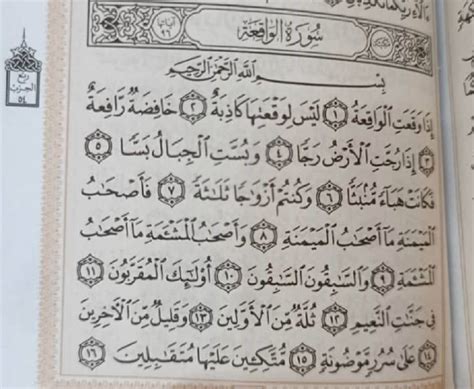 سُورَةُ الوَاقِعَةِ
آياتها ٩٦
بِسْمِ اللَّهِ الرَّحْمَٰنِ الرَّحِيمِ
إِذَا وَقَعَتِ الْوَاقِعَةُ ١ لَيْسَ لِوَقْعَتِهَا كَاذِبَةٌ ٢ خَافِضَةٌ رَّافِعَةٌ
٣ إِذَا رُجَّتِ الْأَرْضُ رَجًّا ٤ وَبُسَّتِ الْجِبَالُ بَسًّا ٥
فَكَانَتْ هَبَاءً مُّنْبَثًّا ٦ وَكُنْتُمْ أَزْوَاجًا ثَلَاثَةً ٧ فَأَصْحَابُ
الْمَيْمَنَةِ مَا أَصْحَابُ الْمَيْمَنَةِ ٨ وَأَصْحَابُ الْمَشْئَمَةِ مَا أَصْحَابُ
الْمَشْئَمَةِ ٩ وَالسَّابِقُونَ السَّابِقُونَ ١٠ أُولَٰئِكَ الْمُقَرَّبُونَ ١١
فِي جَنَّاتِ النَّعِيمِ ١٢ ثُلَّةٌ مِّنَ الْأَوَّلِينَ ١٣ وَقَلِيلٌ مِّنَ الْآخِرِينَ
١٤ عَلَىٰ سُرُرٍ مَّوْضُونَةٍ ١٥ مُتَّكِئِينَ عَلَيْهَا مُتَقَابِلِينَ ١٦
ربع
الحزب
٥٤